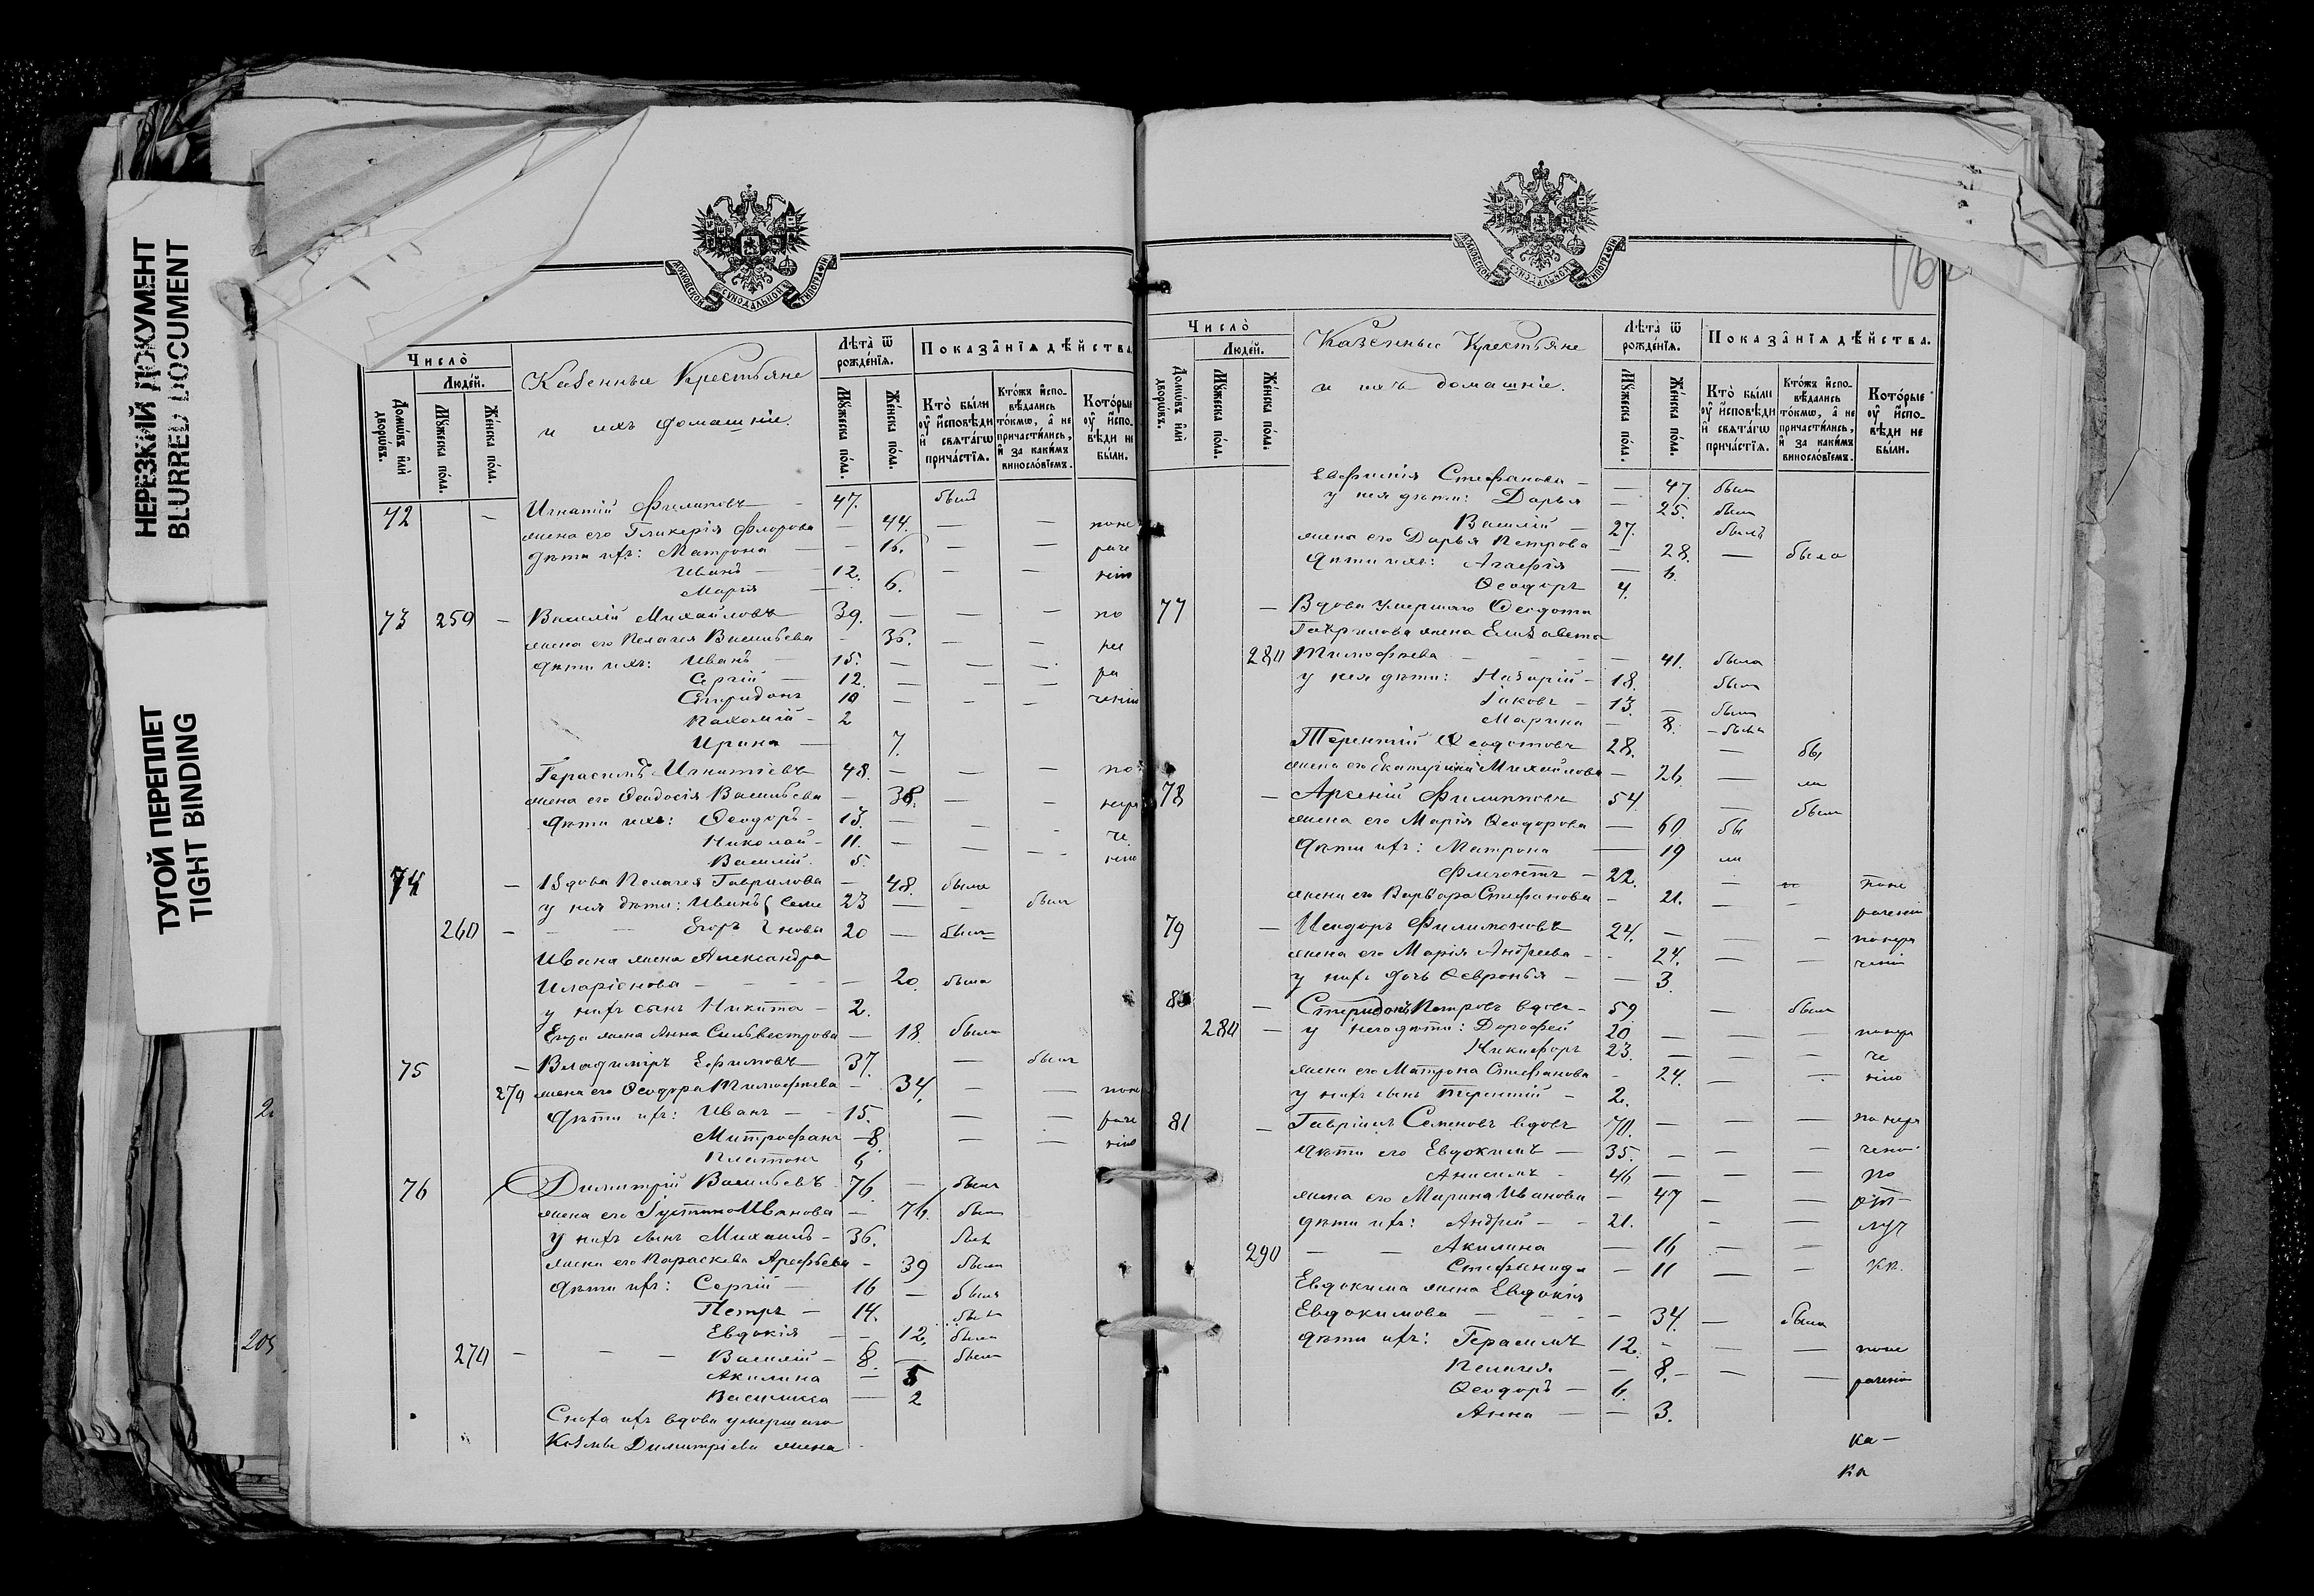 НЕРЕЗКИЙ ДОКУМЕНТ
BLURRED DOCUMENT
ТУГОЙ ПЕРЕПЛЕТ
TIGHT BINDING
205
МОСКОВСКОЙ СУНОДАЛЬНОЙ ТИПОГРАФІИ
Число̀
Людéй.
Домѡ́въ и҆лѝ дворѡ́въ.
Мꙋ́жеска по́ла.
Же́нска по́ла.
Казенные Крестьяне
и ихъ домашніе.
Лѣта̀ ѿ рожде́нїѧ.
Мꙋ́жеска по́ла.
Же́нска по́ла.
Показа̑нїѧ дѣ́йства.
Кто̀ бы́ли ᲂу҆ и҆сповѣди и҆ свѧта́гѡ прича́стїѧ.
Кто́жъ и҆сповѣдались то́кмѡ, а҆ не причасти́лись, и҆ за каки́мъ винослóвїемъ.
Кото́рые ᲂу҆ и҆сповѣди не бы́ли.
72 — Игнатій Филиповъ — 47. былъ
жена его Гликерія Флорова — 44. — — по не
дѣти ихъ: Матрона — — 16. — — раче
Иванъ — 12. — — нію
Марія — 6.
73 259 — Василій Михайловъ 39. — — — по
жена его Пелагея Васильева — 36. — — не
дѣти ихъ: Иванъ — 15. — — — ра
Сергій — 12. — — — ченію
Спиридонъ 10 — — —
Пахомій — 2
Ирина — 7.
Герасимъ Игнатіевъ 48. — — — по
жена его Ѳеодосія Васильева — 38. — — нера
дѣти ихъ: Ѳеодоръ — 13. — — — че
Николай — 11. — — — нію
Василій. 5.
74 — Вдова Пелагея Гаврилова — 48. была
у нея дѣти: Иванъ { Семе 23 — — былъ
260 — — — Егоръ } новы 20 — былъ
Ивана жена Александра
Иларіонова — — — — 20. была
у нихъ сынъ Никита — 2.
Егора жена Анна Сильвестрова — 18. была
75 — Владиміръ Ефимовъ 37. — былъ
270 жена его Ѳеодора Тимофеева — 34. — — поне
дѣти ихъ: Иванъ — — 15. — — раче
Митрофанъ — 8. — — нію
Платонъ 6
76 Димитрій Васильевъ 76. — былъ
жена его Іустина Иванова — 76. была
у нихъ сынъ Михаилъ — 36. былъ
жена его Параскева Арефьева — 39 была
дѣти ихъ: Сергій — 16 — былъ
Петръ — 14. былъ
Евдокія — — 12. была
270 — — — Василій — 8. — былъ
Акилина — 5
Василиса — 2
Сноха ихъ вдова умершаго
Козьмы Димитріева жена
МОСКОВСКОЙ СУНОДАЛЬНОЙ ТИПОГРАФІИ
Число̀
Людéй.
Домѡ́въ и҆лѝ дворѡ́въ.
Мꙋ́жеска по́ла.
Же́нска по́ла.
Казенные Крестьяне
и ихъ домашніе.
Лѣта̀ ѿ рожде́нїѧ.
Мꙋ́жеска по́ла.
Же́нска по́ла.
Показа̑нїѧ дѣ́йства.
Кто̀ бы́ли ᲂу҆ и҆сповѣди и҆ свѧта́гѡ прича́стїѧ.
Кто́жъ и҆сповѣдались то́кмѡ, а҆ не причасти́лись, и҆ за каки́мъ винослóвїемъ.
Кото́рые ᲂу҆ и҆сповѣди не бы́ли.
Стефанова — — 47. была
у нея дѣти: Дарья — 25. была
Василій — 27. былъ
жена его Дарья Петрова — 28. — была
дѣти ихъ: Агафія — 6.
Ѳеодоръ 4.
77 — Вдова умершаго Ѳеодота
Гаврилова жена Елизавета
280 Тимофеева — — — — 41. была
у нея дѣти: Назарій — 18. былъ
Іаковъ — 13. — былъ
Марина — 8. — была
Терентій Ѳеодотовъ 28. — бы
жена его Екатерина Михайлова — 26. — ли
78 — Арсеній Филипповъ 54. — былъ
жена его Марія Ѳеодорова — 60. бы
дѣти ихъ: Матрона — 19 ли
22. — — поне
жена его Варвара Стефанова — 21. — — раченію
79 — Исидоръ Филимоновъ 24. — — — по нера
жена его Марія Андреева — — 24. — — ченію
у нихъ дочь Ѳевронья — — 3.
— Спиридонъ Петровъ вдовъ — 59 — былъ
280 — у него дѣти: Дорофей 20 — — — по нера
Никифоръ 23. — — — че
жена его Матрона Стефанова — 24. — — нію
у нихъ сынъ Терентій — 2.
81 — Гавріилъ Семеновъ вдовъ 70. — — — по нера
дѣти его Евдокимъ — 35. — — — ченію
Анисимъ — 46 — — — по
жена его Марина Иванова — 47 — —
дѣти ихъ: Андрей — — 21. — — луч
290 — — Акилина — 16 — —
Стефанида — 11 — —
Евдокима жена Евдокія
Евдокимова — — — 34. — была
дѣти ихъ: Герасимъ 12. — — — поне
Пелагея — 8. — — — раченію
Ѳеодоръ — 6.
Анна — — 3.
ка —
ка